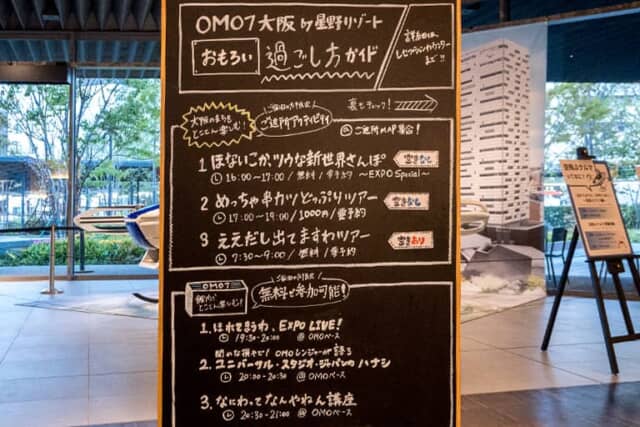 OMO7大阪 by 星野リゾート
おもろい 過ごし方ガイド
詳細は、
レセプションカウンター
まで!!
大阪のまちを
とことん楽しむ!
ご宿泊の方限定
ご近所アクティビティ
裏もチェック!
@ご近所MAP集合!
1 ほないこか、ツウな新世界さんぽ 空きなし
16:00~17:00/無料/要予約 ~EXPO Special~
2 めっちゃ串カツどっぷりツアー 空きなし
17:00~19:00/1000円/要予約
3 ええだし出てますわツアー 空きあり
7:30~9:00/無料/要予約
OMO7
館内で
とことん楽しむ!
ご宿泊の方限定
無料で参加可能!
1. ほれてまうわ、EXPO LIVE!
19:30-20:00 @OMOベース
OMOレンジャーが語る
2. ユニバーサル・スタジオ・ジャパンのハナシ
20:00-20:30 @OMOベース
3. なにわってなんやねん講座
20:30-21:00 @OMOベース